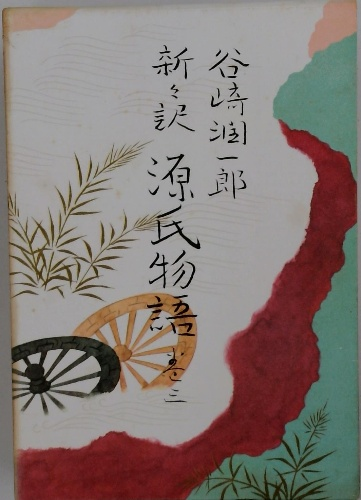 谷崎潤一郎
新々訳
源氏物語 巻三